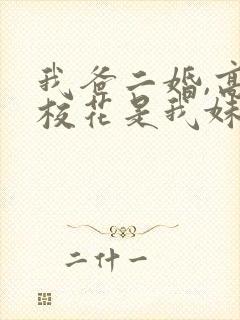 我爸二婚,高
校花是我妹
二什一